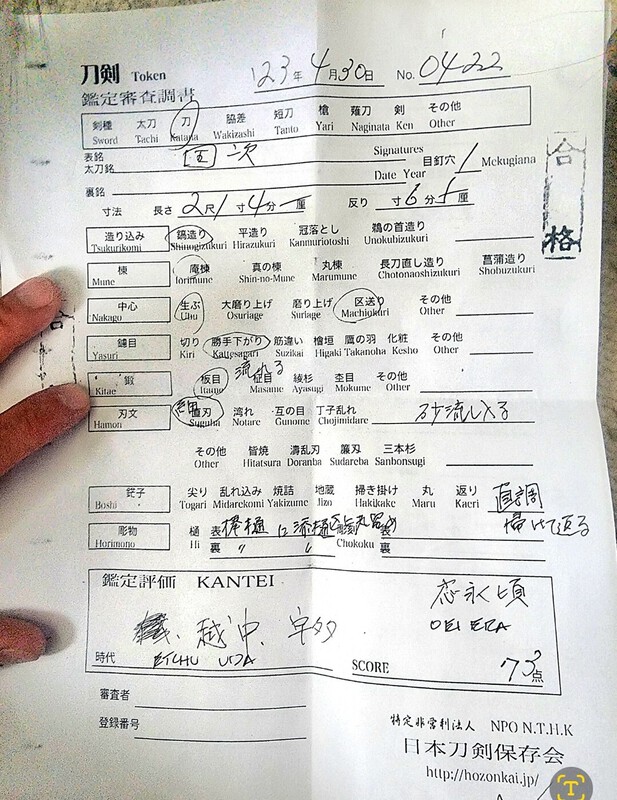 刀剣 Token '23年 4月30日 No. 0422
鑑定審査調書
剣種 太刀 刀 脇差 短刀 槍 薙刀 剣 その他
Sword Tachi Katana Wakizashi Tanto Yari Naginata Ken Other
表銘 Signatures
太刀銘 国次 目釘穴 1 Mekugiana
裏銘 Date Year
寸法 長さ 2尺1寸4分 厘 反り 寸6分 厘
造り込み 鎬造り 平造り 冠落とし 鵜の首造り
Tsukurikomi Shinogizukuri Hirazukuri Kanmuriotoshi Unokubizukuri
棟 庵棟 真の棟 丸棟 長刀直し造り 菖蒲造り
Mune Iorimune Shin-no-Mune Marumune Chotonaoshizukuri Shobuzukuri
中心 生ぶ 大磨り上げ 磨り上げ 区送り その他
Nakago Ubu Osuriage Suriage Machiokuri Other
鑢目 切り 勝手下がり 筋違い 檜垣 鷹の羽 化粧 その他
Yasuri Kiri Kattesagari Suzikai Higaki Takanoha Kesho Other
流れる
鍛 板目 柾目 綾杉 杢目 その他
Kitae Itame Masame Ayasugi Mokume Other
刃文 細 直刃 湾れ 互の目 丁子乱れ 砂流し入る
Hamon Suguha Notare Gunome Chojimidare
その他 皆焼 濤乱刃 簾刃 三本杉
Other Hitatsura Doranba Sudareba Sanbonsugi
鋩子 尖り 乱れ込み 焼詰 地蔵 掃き掛け 丸 返り 直調
Boshi Togari Midarekomi Yakizume Jizo Hakikake Maru Kaeri 掃けて返る
彫物 樋 表 棒樋に添樋 表
Horimono Hi 裏 〃 〃 Chokoku 裏
鑑定評価 KANTEI 応永頃
越中 宇多 OEI ERA
時代 ETCHU UDA SCORE 73点
審査者
登録番号
特定非営利法人 NPO N.T.H.K
日本刀剣保存会
http://hozonkai.jp/
合格
合格
T